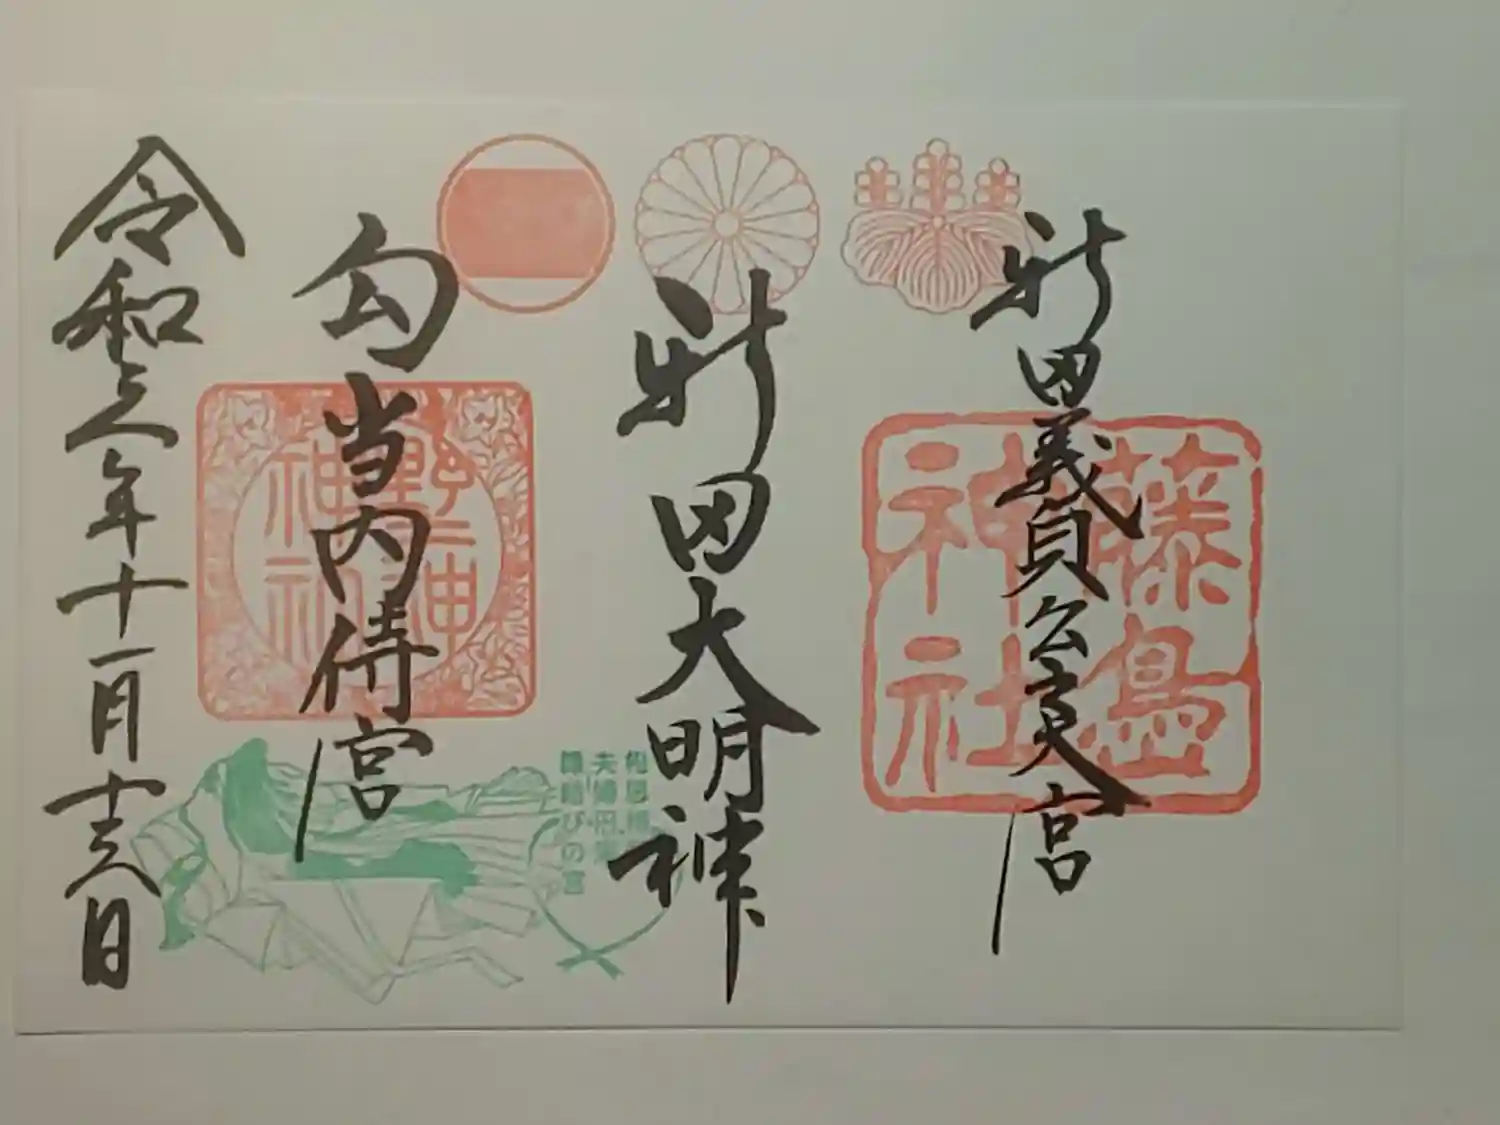 新田義貞公
宮
藤島
神社
新田大明神
勾当内侍宮
野神
神社
相思相愛
夫婦円満
縁結びの宮
令和三年十一月十三日